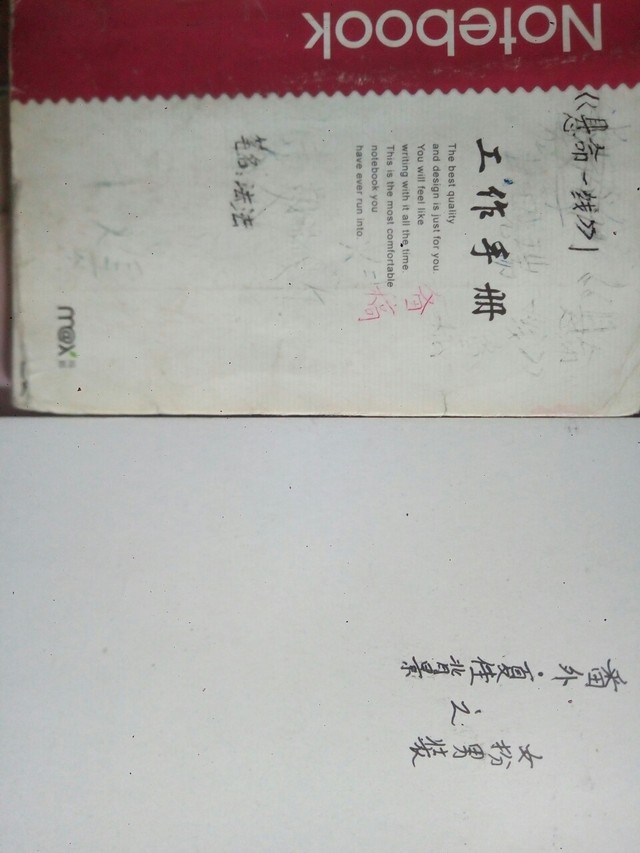 Notebook
《悬命一线》1
工作手册
The best quality
and design is just for you.
You will feel like
writing with it all the time.
This is the most comfortable
notebook you
have ever run into.
稿
笔名:法
m@x
番外·夏佳背景
之
女扮男装